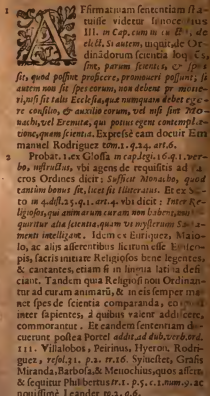 1 AFfirmatiuam sententiam sta-
tuisse videtur Innocentius
III. in Cap. cum in cunctis, de
elect. Si autem, inquit, de Or-
dinadorum scientia
sint, parum scientes, & spes
sit, quod possint proficere, promoueri possunt; si
autem non sit spes eorum, non debent pro-
eri, nisi sit talis Ecclesia, quæ numquam debet ege-
re consilio, & auxilio eorum, vel nisi sint Mo-
nachi, vel Eremitæ, qui potius egent contempla-
tione, quam scientia. Expressè eam docuit Em
manuel Rodriguez tom. 1. q. 24. art. 6.
2 Probat. 1. ex Glossa in cap. legi. 16. q. 1. ver-
bo, instructus, vbi agens de requisitis ad Sa-
cros Ordines dicit: Sufficit Monacho, quod
tantùm bonus sit, licet sit Illiteratus. Et ex
to in 4. dist. 25. q. 1. art. 4. vbi dicit: Inter Re-
ligiosos, qui animarum curam non habent, non
quiritur alia scientia, quam vt mysterium Sacra-
menti intelligant. Idem ex Enriquez, Maio-
lo, ac alijs asserentibus licitum esse Episco-
pis, sacris initiare Religiosos bene legentes,
& cantantes, etiam si in lingua latina defi-
ciant. Tandem quia Religiosi non Ordinan-
tur ad curam animarũ, & in eis semper ma-
net spes de scientia comparanda, eo quod
inter sapientes, à quibus valent addiscere,
commorantur. Et eandem sententiam do-
cuerunt postea Portel addit. ad dub. verb. ord.
111. Villalobos, Peirinus, Hyeron. Rodri-
guez, resol. 31. p. 2. nr. 16. Syluester, Grafis
Miranda, Barbosa, & Menochius, quos affert,
& sequitur Philibertus tr. 1. p. 5. c. 1. num. 9. ac
nouissimè Leander